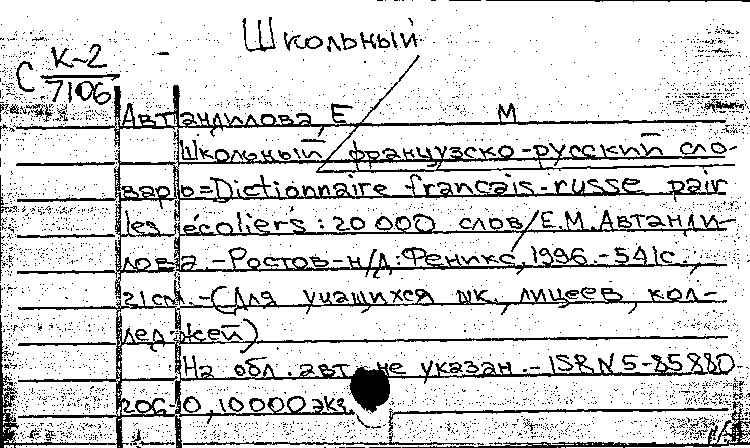 Школьный
С К-2
7106
Автандилова, Е М
Школьный французско-русский сло-
варь=Dictionnaire francais-russe pair
les écoliers : 20 000 слов/Е.М.Автанди-
лова.-Ростов-н/Д:Феникс, 1996.-541с.,
21см.-(Для учащихся шк., лицеев, кол-
леджей)
На обл. авт. не указан.-ISBN5-85880
206-0, 10000экз.